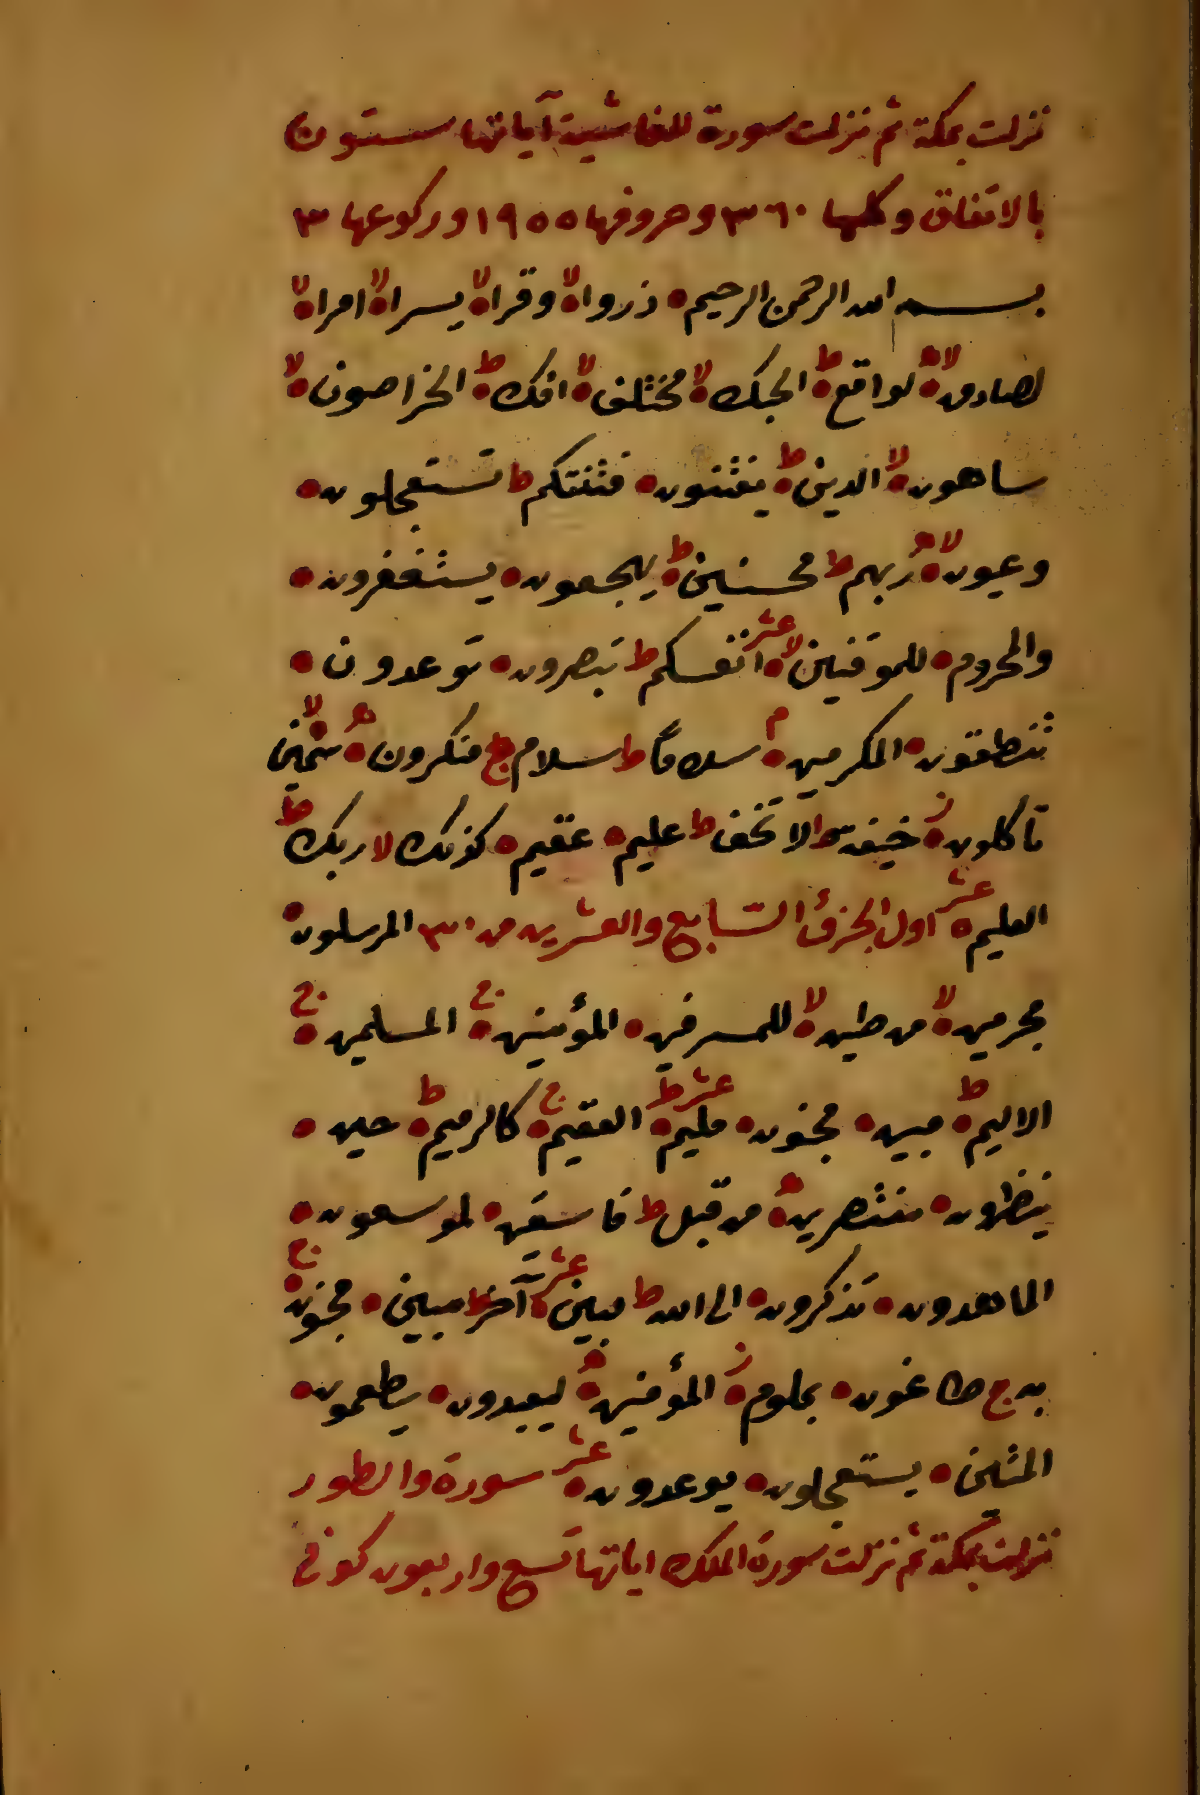 نزلت بمكة ثم نزلت سورة الغاشية آياتها ستون
بالاتفاق وكلمها ٣٦٠ وحروفها ١٩٥٥ وركوعها ٣
بسم الله الرحمن الرحيم ذرواة لا وقراة لا يسراة لا امراة لا
لصادق لا لواقع ط الحبك لا مختلف لا افك ط الخراصون لا
ساهون لا الدين ط يفتنون فتنتكم ط تستعجلون
وعيون لا ربهم ط محسنين ط يهجعون يستغفرون
والمحروم للموقنين لا عشر انفسكم ط تبصرون توعدون
تنطقون المكرمين م سلاما ط سلام ج منكرون سمين لا
تاكلون ز خيفة لا تخف ط عليم عقيم كذلك لا ربك ط
العليم عشر اول الجزء السابع والعشرين من ٣٠ المرسلون
مجرمين لا من طين لا للمسرفين المؤمنين ج المسلمين ج
الاليم ط مبين مجنون مليم عشر ط العقيم ج كالرميم ط حين
ينظرون منتصرين من قبل ط فاسقين لموسعون
الماهدون تذكرون الى الله ط مبين عشر آخر ط مبين مجنون ج
به ج طاغون بملوم ز المؤمنين ليعبدون يطعمون
المتين يستعجلون يوعدون عشر سورة والطور
نزلت بمكة ثم نزلت سورة الملك اياتها تسع واربعون كوفي